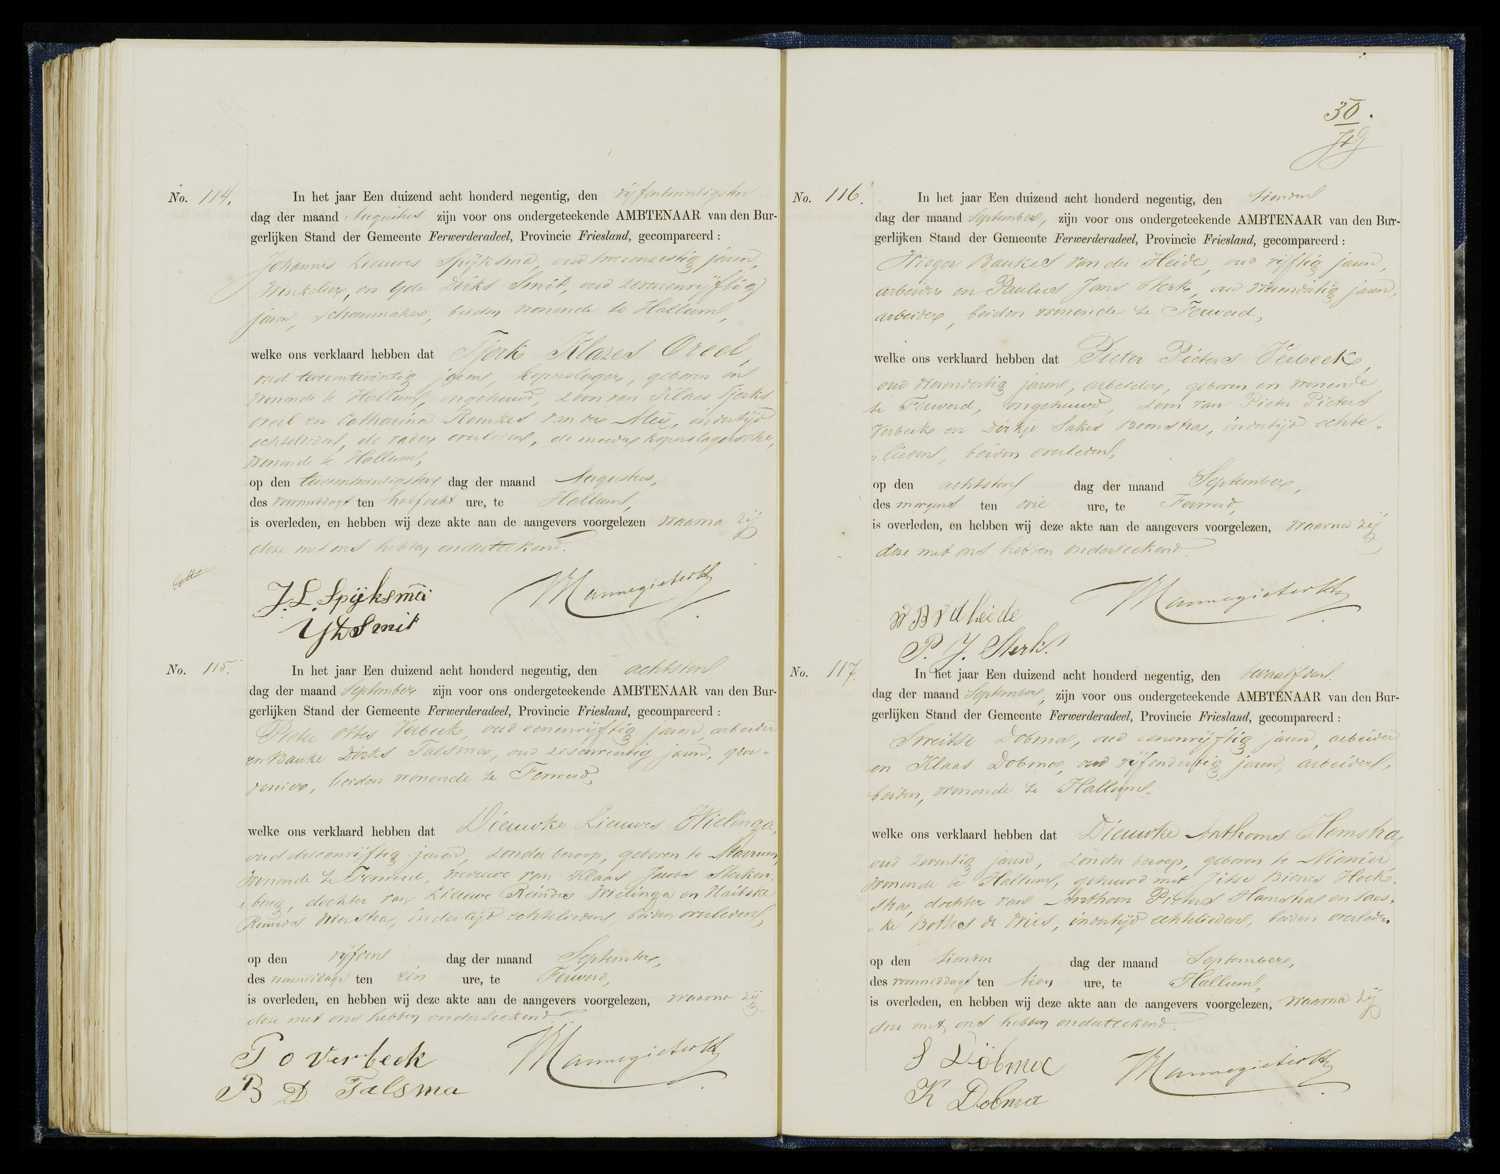 No. 114.
In het jaar Een duizend acht honderd negentig, den vijfentwintigsten
dag der maand Augustus zijn voor ons ondergeteekende AMBTENAAR van den Bur-
gerlijken Stand der Gemeente Ferwerderadeel, Provincie Friesland, gecompareerd :
Johannes Lieuwes Spijksma, oud jaren,
winkelier, en Ype Dirks Smit, oud zevenenvijftig
jaren, schoenmaker, beiden wonende te Hallum,
welke ons verklaard hebben dat Tjerk Klazes Oreel,
oud jaren, koperslager, geboren en
wonende te Hallum, ongehuwd, zoon van Klaas Tjerks
Oreel en Catharina Reinkes van der Meer, in der tijd
echtelieden, de vader overleden, de moeder koperslagersche,
wonende te Hallum,
op den tweeentwintigsten dag der maand Augustus,
des voormiddags ten half acht ure, te Hallum,
is overleden, en hebben wij deze akte aan de aangevers voorgelezen waarna zij
deze met ons hebben onderteekend.
J. L. Spijksma
Y D Smit
Mannegieter Wz
No. 115.
In het jaar Een duizend acht honderd negentig, den achtsten
dag der maand September zijn voor ons ondergeteekende AMBTENAAR van den Bur-
gerlijken Stand der Gemeente Ferwerderadeel, Provincie Friesland, gecompareerd :
Pieter Ottes Verbeek, oud eenenvijftig jaren, arbeider
en Bauke Dirks Talsma, oud zesenveertig jaren, gar-
denier, beiden wonende te Ferwerd,
welke ons verklaard hebben dat Dieuwke Lieuwes Wielinga,
oud zesenvijftig jaren, zonder beroep, geboren te
wonende te Ferwerd, weduwe van Klaas Jacobs Sterken-
burg, dochter van Lieuwe Reinders Wielinga en
Reinders in der tijd echtelieden, beiden overleden,
op den vijfden dag der maand September,
des namiddags ten één ure, te Ferwerd,
is overleden, en hebben wij deze akte aan de aangevers voorgelezen, waarna zij
deze met ons hebben onderteekend.
P o verbeek
B D Talsma
Mannegieter Wz
30.
No. 116.
In het jaar Een duizend acht honderd negentig, den tienden
dag der maand September, zijn voor ons ondergeteekende AMBTENAAR van den Bur-
gerlijken Stand der Gemeente Ferwerderadeel, Provincie Friesland, gecompareerd :
Wieger Baukes van der Heide, oud vijftig jaren,
arbeider en Paulus Jans Sterk, oud jaren,
arbeider, beiden wonende te Ferwerd,
welke ons verklaard hebben dat Pieter Pieters Verbeek,
oud jaren, arbeider, geboren en wonende
te Ferwerd, ongehuwd, zoon van Pieter Pieters
Verbeek en Dirkje Sakes Boonstra, in der tijd echte-
lieden, beiden overleden,
op den achtsten dag der maand September,
des morgens ten drie ure, te Ferwerd,
is overleden, en hebben wij deze akte aan de aangevers voorgelezen, waarna zij
deze met ons hebben onderteekend.
W B v d heide
P. J. Sterk.
Mannegieter Wz
No. 117.
In het jaar Een duizend acht honderd negentig, den twaalfden
dag der maand September, zijn voor ons ondergeteekende AMBTENAAR van den Bur-
gerlijken Stand der Gemeente Ferwerderadeel, Provincie Friesland, gecompareerd :
Sweitse Dobma, oud eenenvijftig jaren, arbeider
en Klaas Dobma, oud vijfendertig jaren, arbeider,
beiden, wonende te Hallum,
welke ons verklaard hebben dat Dieuwke Anthonies Hamstra,
oud zeventig jaren, zonder beroep, geboren te
wonende te Hallum, gehuwd met Hoek-
stra, dochter van Anthoon Pieters Hamstra en Saas-
ke Bottes de Vries, in der tijd echtelieden, beiden overleden
op den tienden dag der maand September,
des voormiddags ten tien ure, te Hallum,
is overleden, en hebben wij deze akte aan de aangevers voorgelezen, waarna zij
deze met ons hebben onderteekend.
S Dobma
K Dobma
Mannegieter Wz